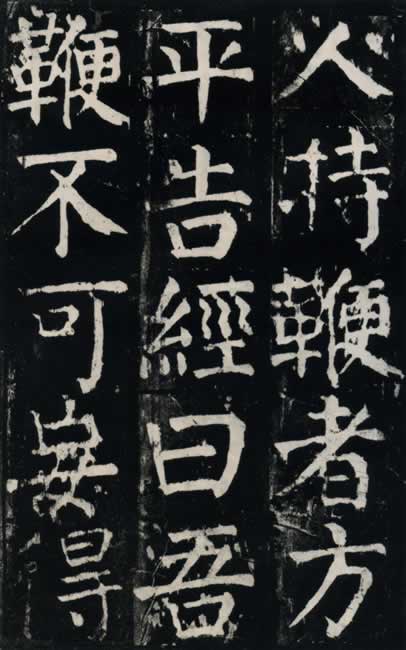 人持鞭者方
平告經曰吾
鞭不可妄得